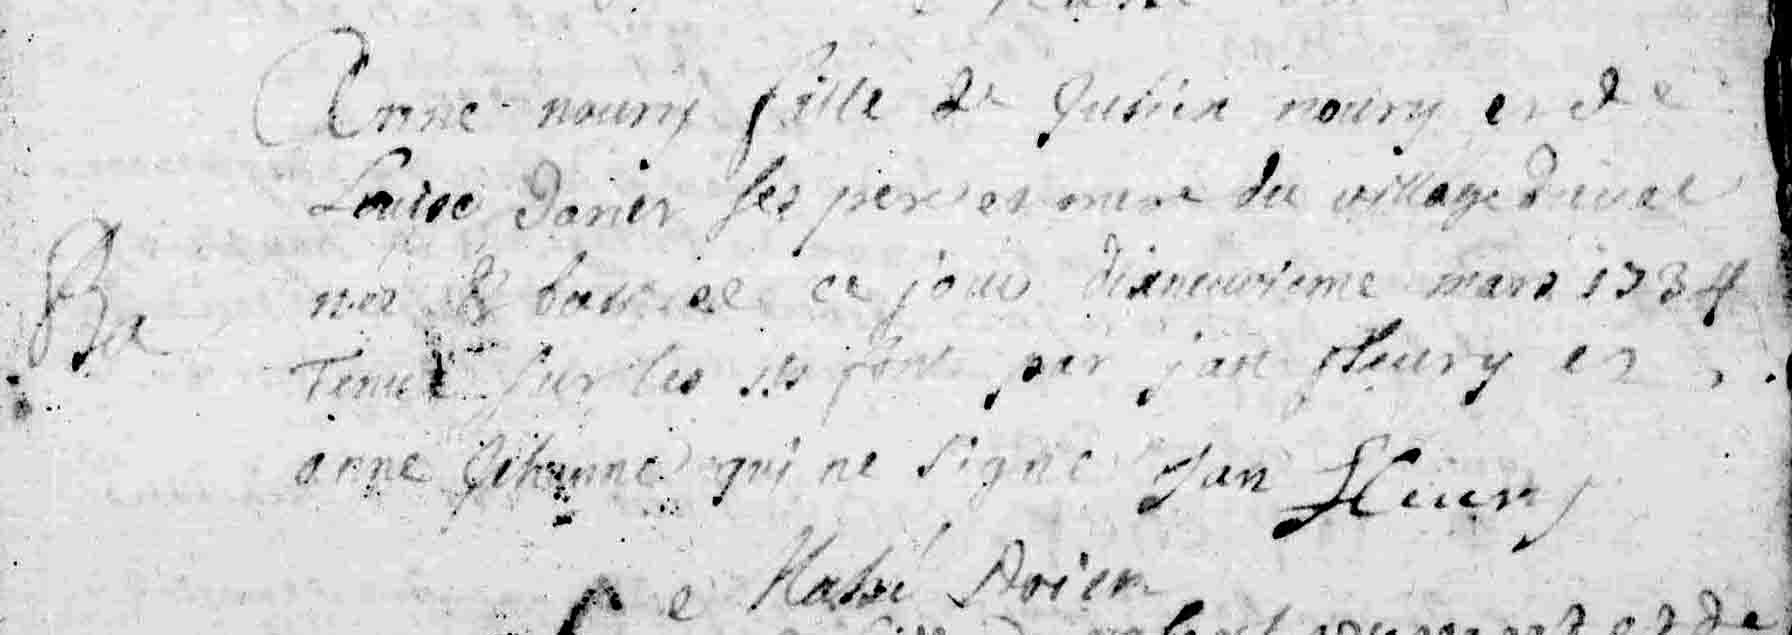 Anne noury fille de Julien noury et de
Louise Dorier ses pere et mere du village
née & batisée ce jour dixneuvieme mars 1734
Ba
Tenue sur les sts fonts par jan fleury et
anne qui ne signe Jan fleury